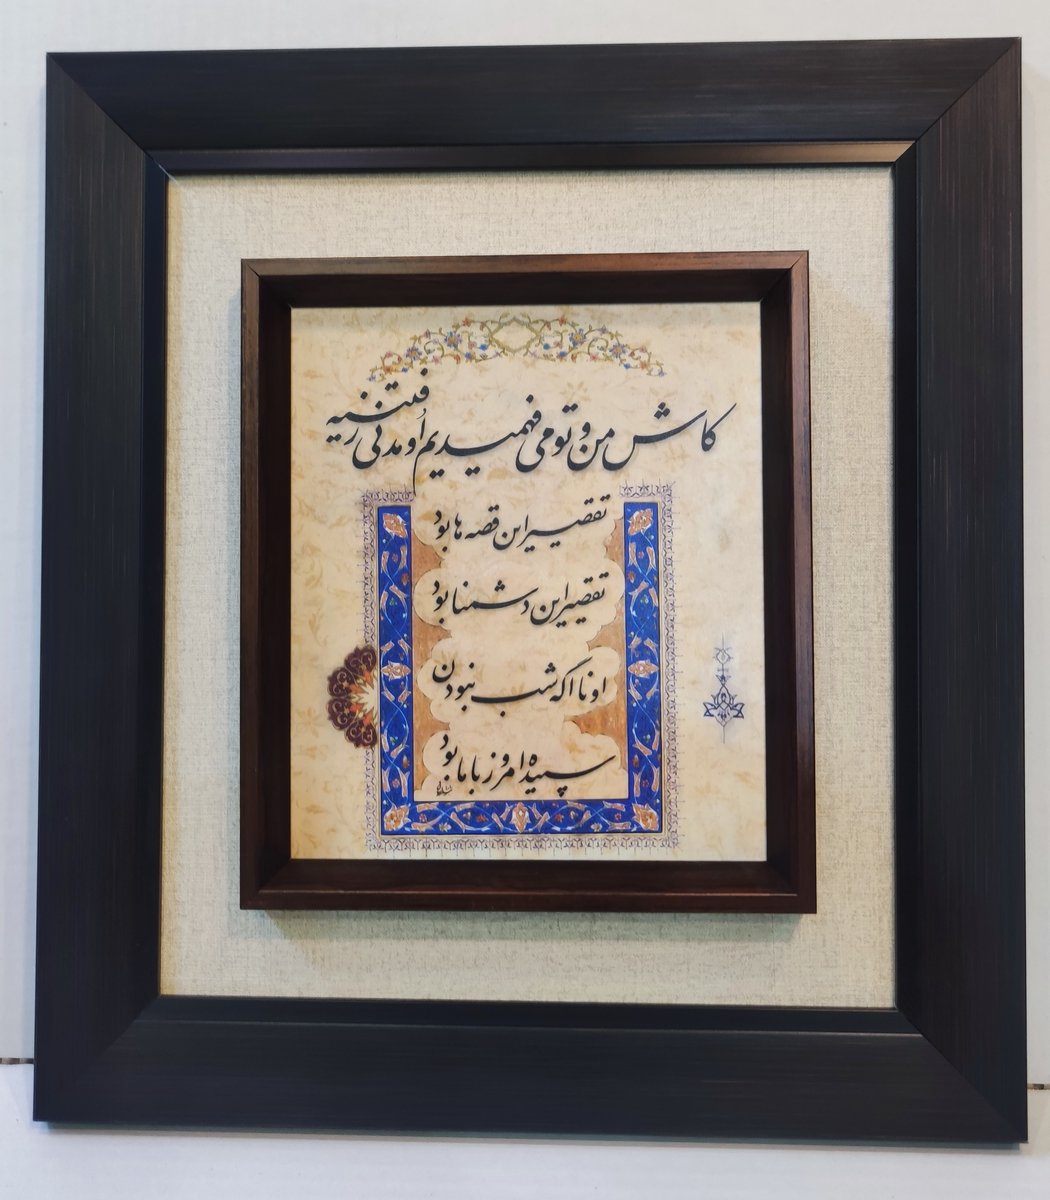 کاش من و تو می فهمیدیم اُومدنی رفتنیه
تقصیر این قصه ها بود
تقصیر این دشمنا بود
اونا اگه شب نبودن
سپیده امروز با ما بود